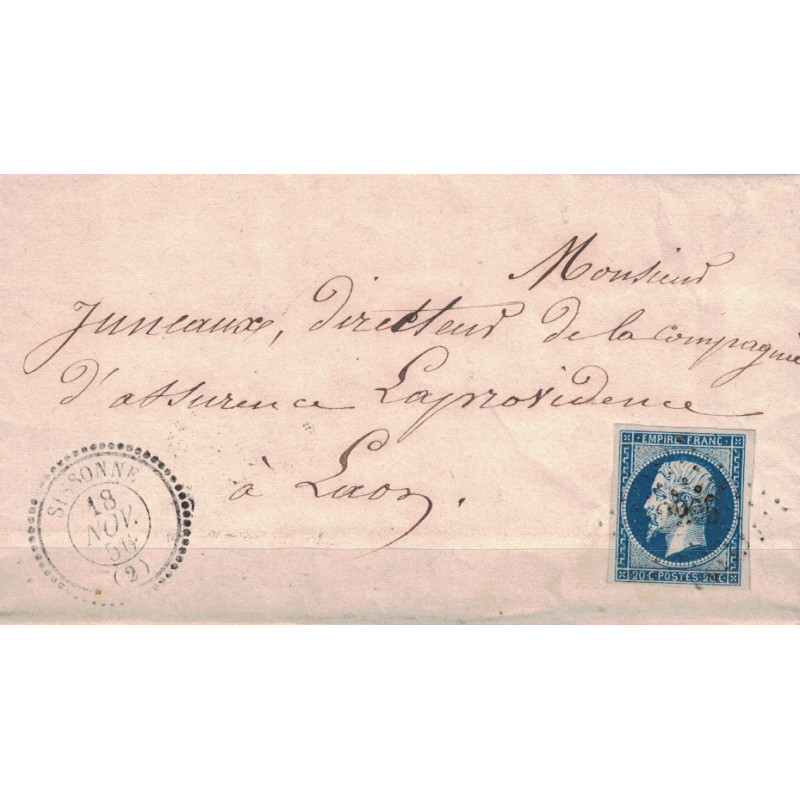 Monsieur
Juneaux, directeur de la compagnie
d'assurence Laprovidence
à Laon.
SISSONNE
18
NOV.
56
(2)
EMPIRE FRANC
20 C POSTES 20 C